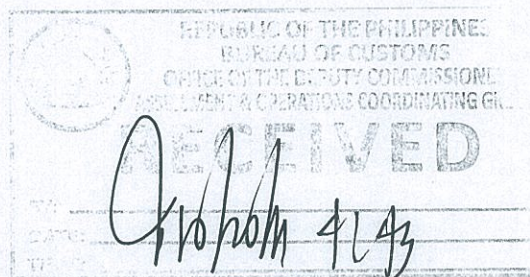 REPUBLIC OF THE PHILIPPINES
BUREAU OF CUSTOMS
OFFICE OF THE DEPUTY COMMISSIONE
ASSESSMENT & OPERATIONS COORDINATING G
RECEIVED
BY:
DATE:
TIME: